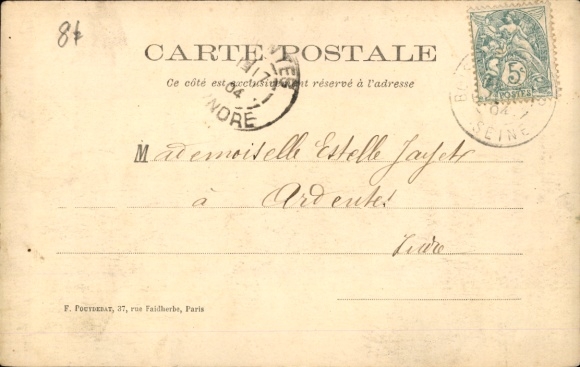 84
CARTE POSTALE
Ce côté est exclusivement réservé à l'adresse
NTES
04
INDRE
5c
POSTES
04
SEINE
Mademoiselle Estelle
à Ardentes
Indre
F. POUYDEBAT, 37, rue Faidherbe, Paris